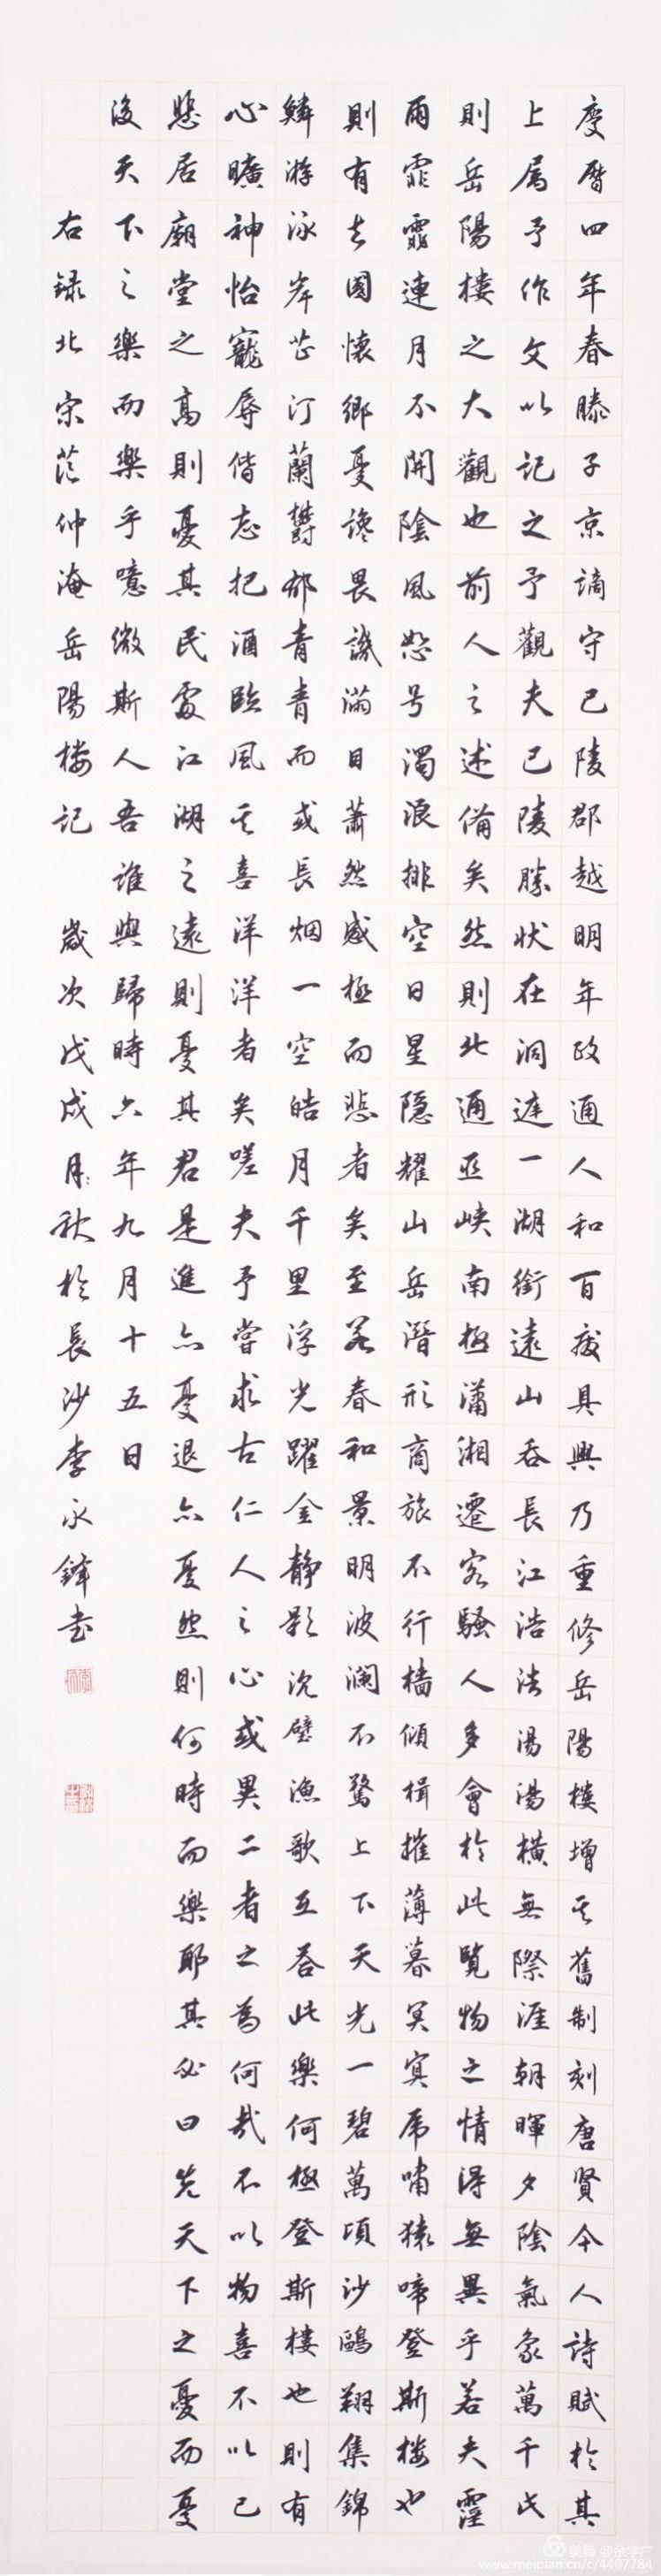 慶曆四年春滕子京謫守巴陵郡越明年政通人和百廢具興乃重修岳陽樓增其舊制刻唐賢今人詩賦於其
上屬予作文以記之予觀夫巴陵勝狀在洞庭一湖銜遠山吞長江浩浩湯湯橫無際涯朝暉夕陰氣象萬千此
則岳陽樓之大觀也前人之述備矣然則北通巫峽南極瀟湘遷客騷人多會於此覽物之情得無異乎若夫霪
雨霏霏連月不開陰風怒号濁浪排空日星隱耀山岳潛形商旅不行檣傾楫摧薄暮冥冥虎嘯猿啼登斯樓也
則有去國懷鄉憂讒畏譏滿目蕭然感極而悲者矣至若春和景明波瀾不驚上下天光一碧萬頃沙鷗翔集錦
鱗游泳岸芷汀蘭鬱郁青青而或長烟一空皓月千里浮光躍金静影沉璧漁歌互荅此樂何極登斯樓也則有
心曠神怡寵辱偕忘把酒臨風其喜洋洋者矣嗟夫予嘗求古仁人之心或異二者之為何哉不以物喜不以己
悲居廟堂之高則憂其民處江湖之遠則憂其君是進亦憂退亦憂然則何時而樂耶其必曰先天下之憂而憂
後天下之樂而樂乎噫微斯人吾誰與歸時六年九月十五日
右録北宋范仲淹岳陽楼記 歲次戊戌月秋於長沙李永鋒書
美篇 @余学广
www.meipian.cn/c/4407784